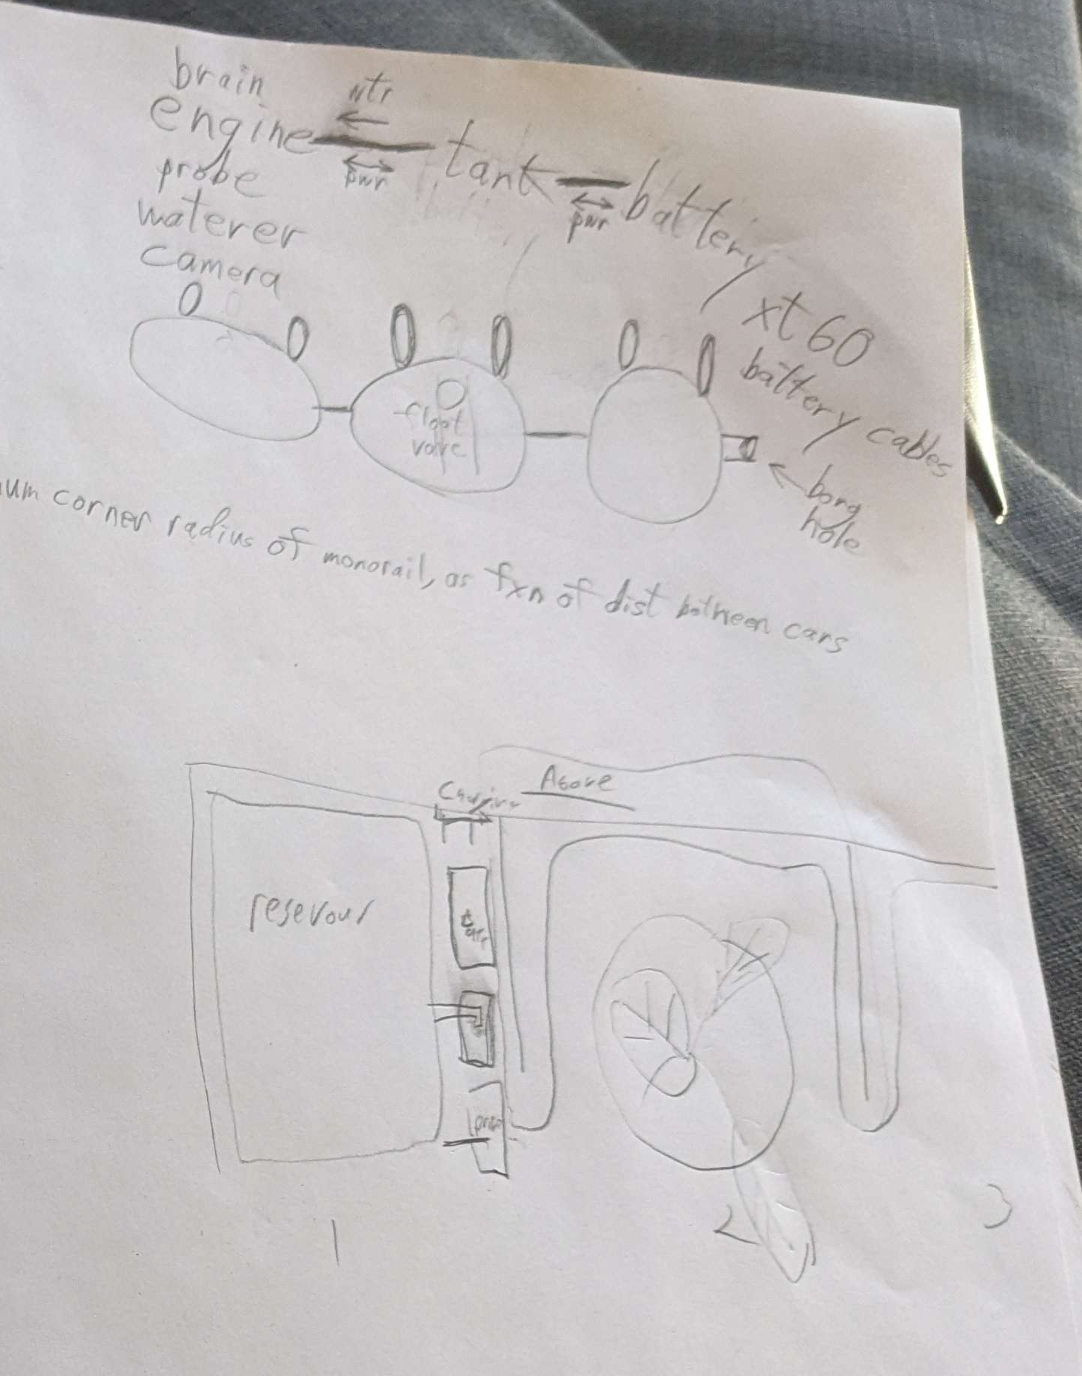 brain
engine
probe
waterer
camera
wtr
pwr
tank
pwr
battery
xt60
battery cables
float
valve
bong
hole
um corner radius of monorail, as fxn of dist bitween cars
Above
resevour
1
2
3